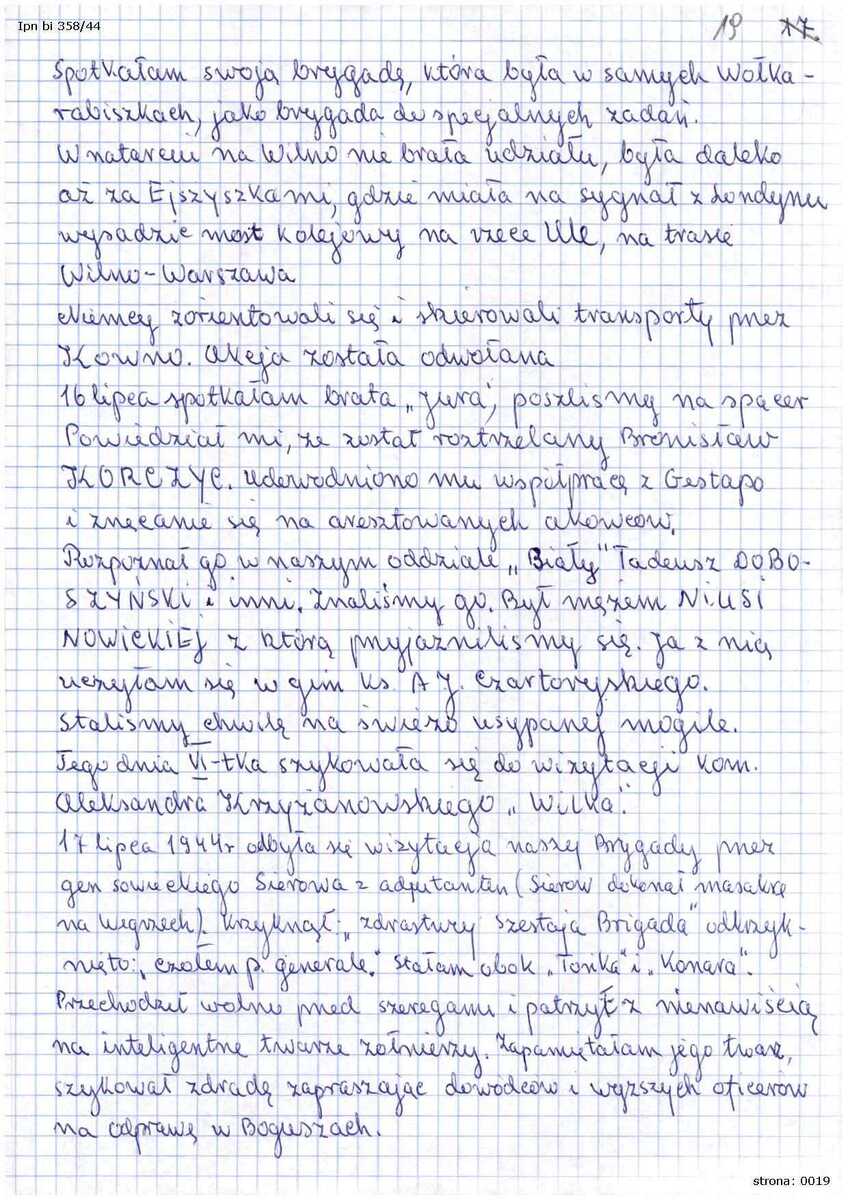 Ipn bi 358/44
19 17.
spotkałam swoją brygadę, która była w samych Wołka-
rabiszkach, jako brygada do specjalnych zadań.
W natarciu na Wilno nie brała udziału, była daleko
aż za Ejszyszkami, gdzie miała na sygnał z Londynu
wysadzić most kolejowy na rzece Ule, na trasie
Wilno-Warszawa
Niemcy zorientowali się i skierowali transporty przez
Kowno. Akcja została odwołana
16 lipca spotkałam brata „Jura", poszliśmy na spacer
Powiedział mi, że został roztrzelany Bronisław
KORCZYC. Udowodniono mu współpracę z Gestapo
i znęcanie się na aresztowanych akowców.
Rozpoznał go w naszym oddziale „Biały" Tadeusz DOBO-
SZYŃSKI i inni. Znaliśmy go. Był mężem NIUSI
NOWICKIEJ z którą przyjaźniliśmy się. Ja z nią
uczyłam się w gim ks. A J. Czartoryjskiego.
Staliśmy chwilę na świeżo usypanej mogile.
Tego dnia VI-tka szykowała się do wizytacji kom.
Aleksandra Krzyżanowskiego „Wilka".
17 lipca 1944r odbyła się wizytacja naszej Brygady przez
gen sowieckiego Sierowa z adjutantem (Sierow dokonał masakrę
na Węgrzech). Krzyknął: „zdrastwuj szestaja Brigada" odkrzyk-
nięto: „czołem p. generale." Stałam obok „Tońka" i „Konara".
Przechodził wolno przed szeregami i patrzył z nienawiścią
na inteligentne twarze żołnierzy. Zapamiętałam jego twarz,
szykował zdradę zapraszając dowódców i wyższych oficerów
na odprawę w Boguszach.
strona: 0019